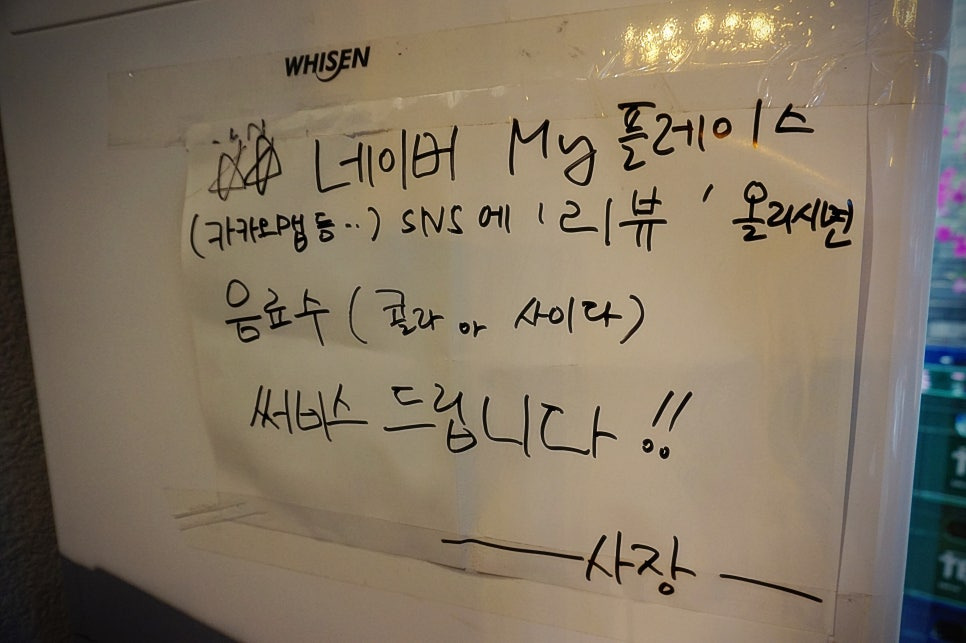 WHISEN
네이버 My플레이스
(카카오맵 등..) SNS에 '리뷰' 올리시면
음료수 (콜라 or 사이다)
써비스 드립니다!!
사장